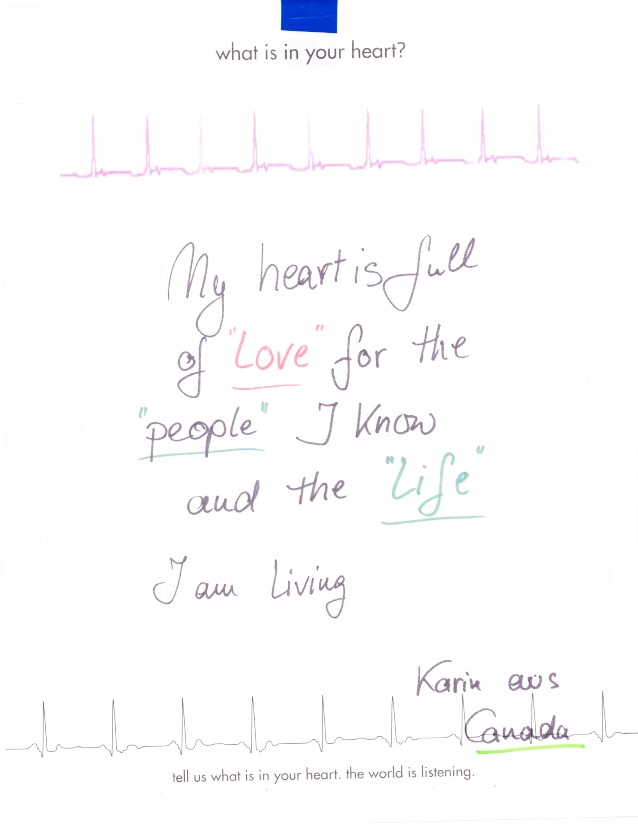 what is in your heart?
My heart is full
of "Love" for the
"people" I Know
and the "Life"
I am Living
Karin aus
Canada
tell us what is in your heart. the world is listening.